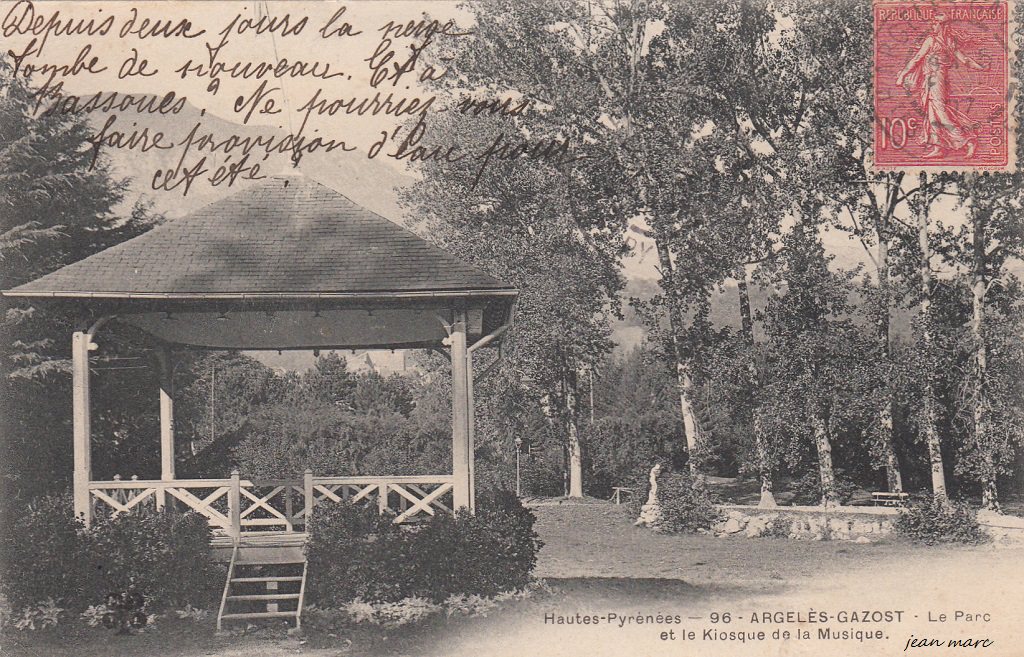 Depuis deux jours la neige
tombe de nouveau. Et à
Bassoues ? Ne pourriez vous
faire provision d'eau pour
cet été
REPUBLIQUE FRANÇAISE
10c
POSTES
Hautes-Pyrénées — 96 - ARGELÈS-GAZOST - Le Parc
et le Kiosque de la Musique.
jean marc